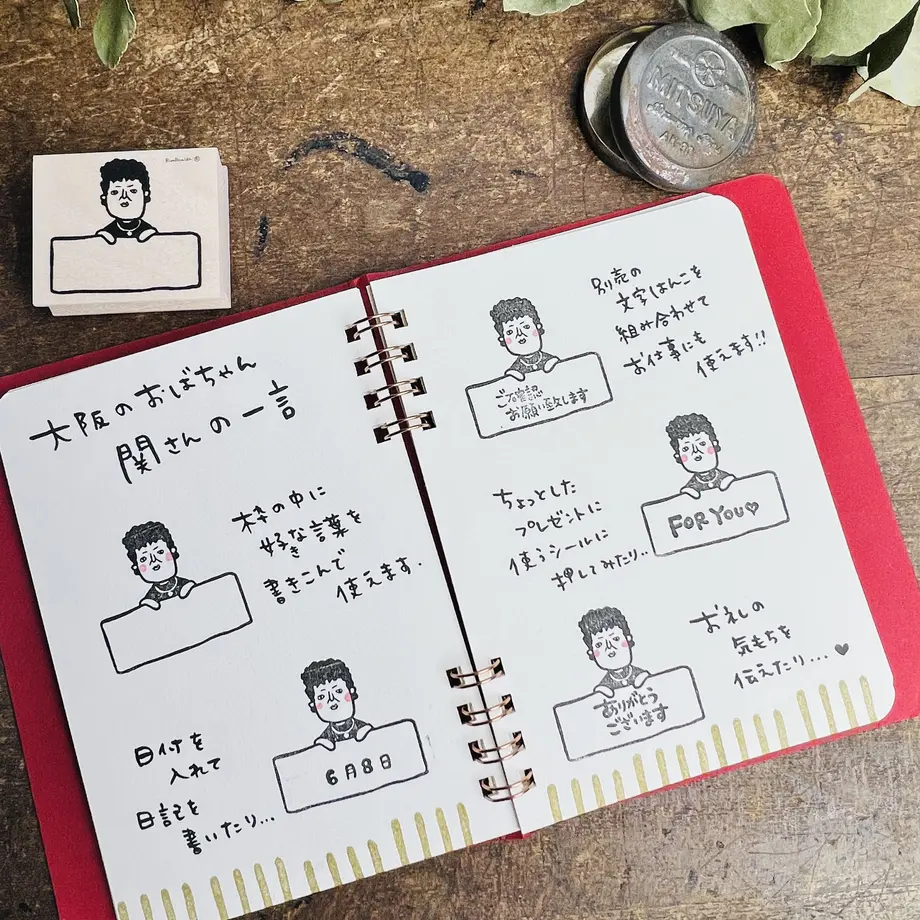 MITSUYA
大阪のおばちゃん
関さんの一言
枠の中に
好きな言葉を
書きこんで
使えます.
6月8日
日付を
入れて
日記を
書いたり...
別売の
文字はんこを
組み合わせて
お仕事にも
使えます!!
ご確認
お願い致します
ちょっとした
プレゼントに
使うシールに
押してみたり..
FOR YOU♡
お礼の
気もちを
伝えたり...♥
ありがとう
ございます